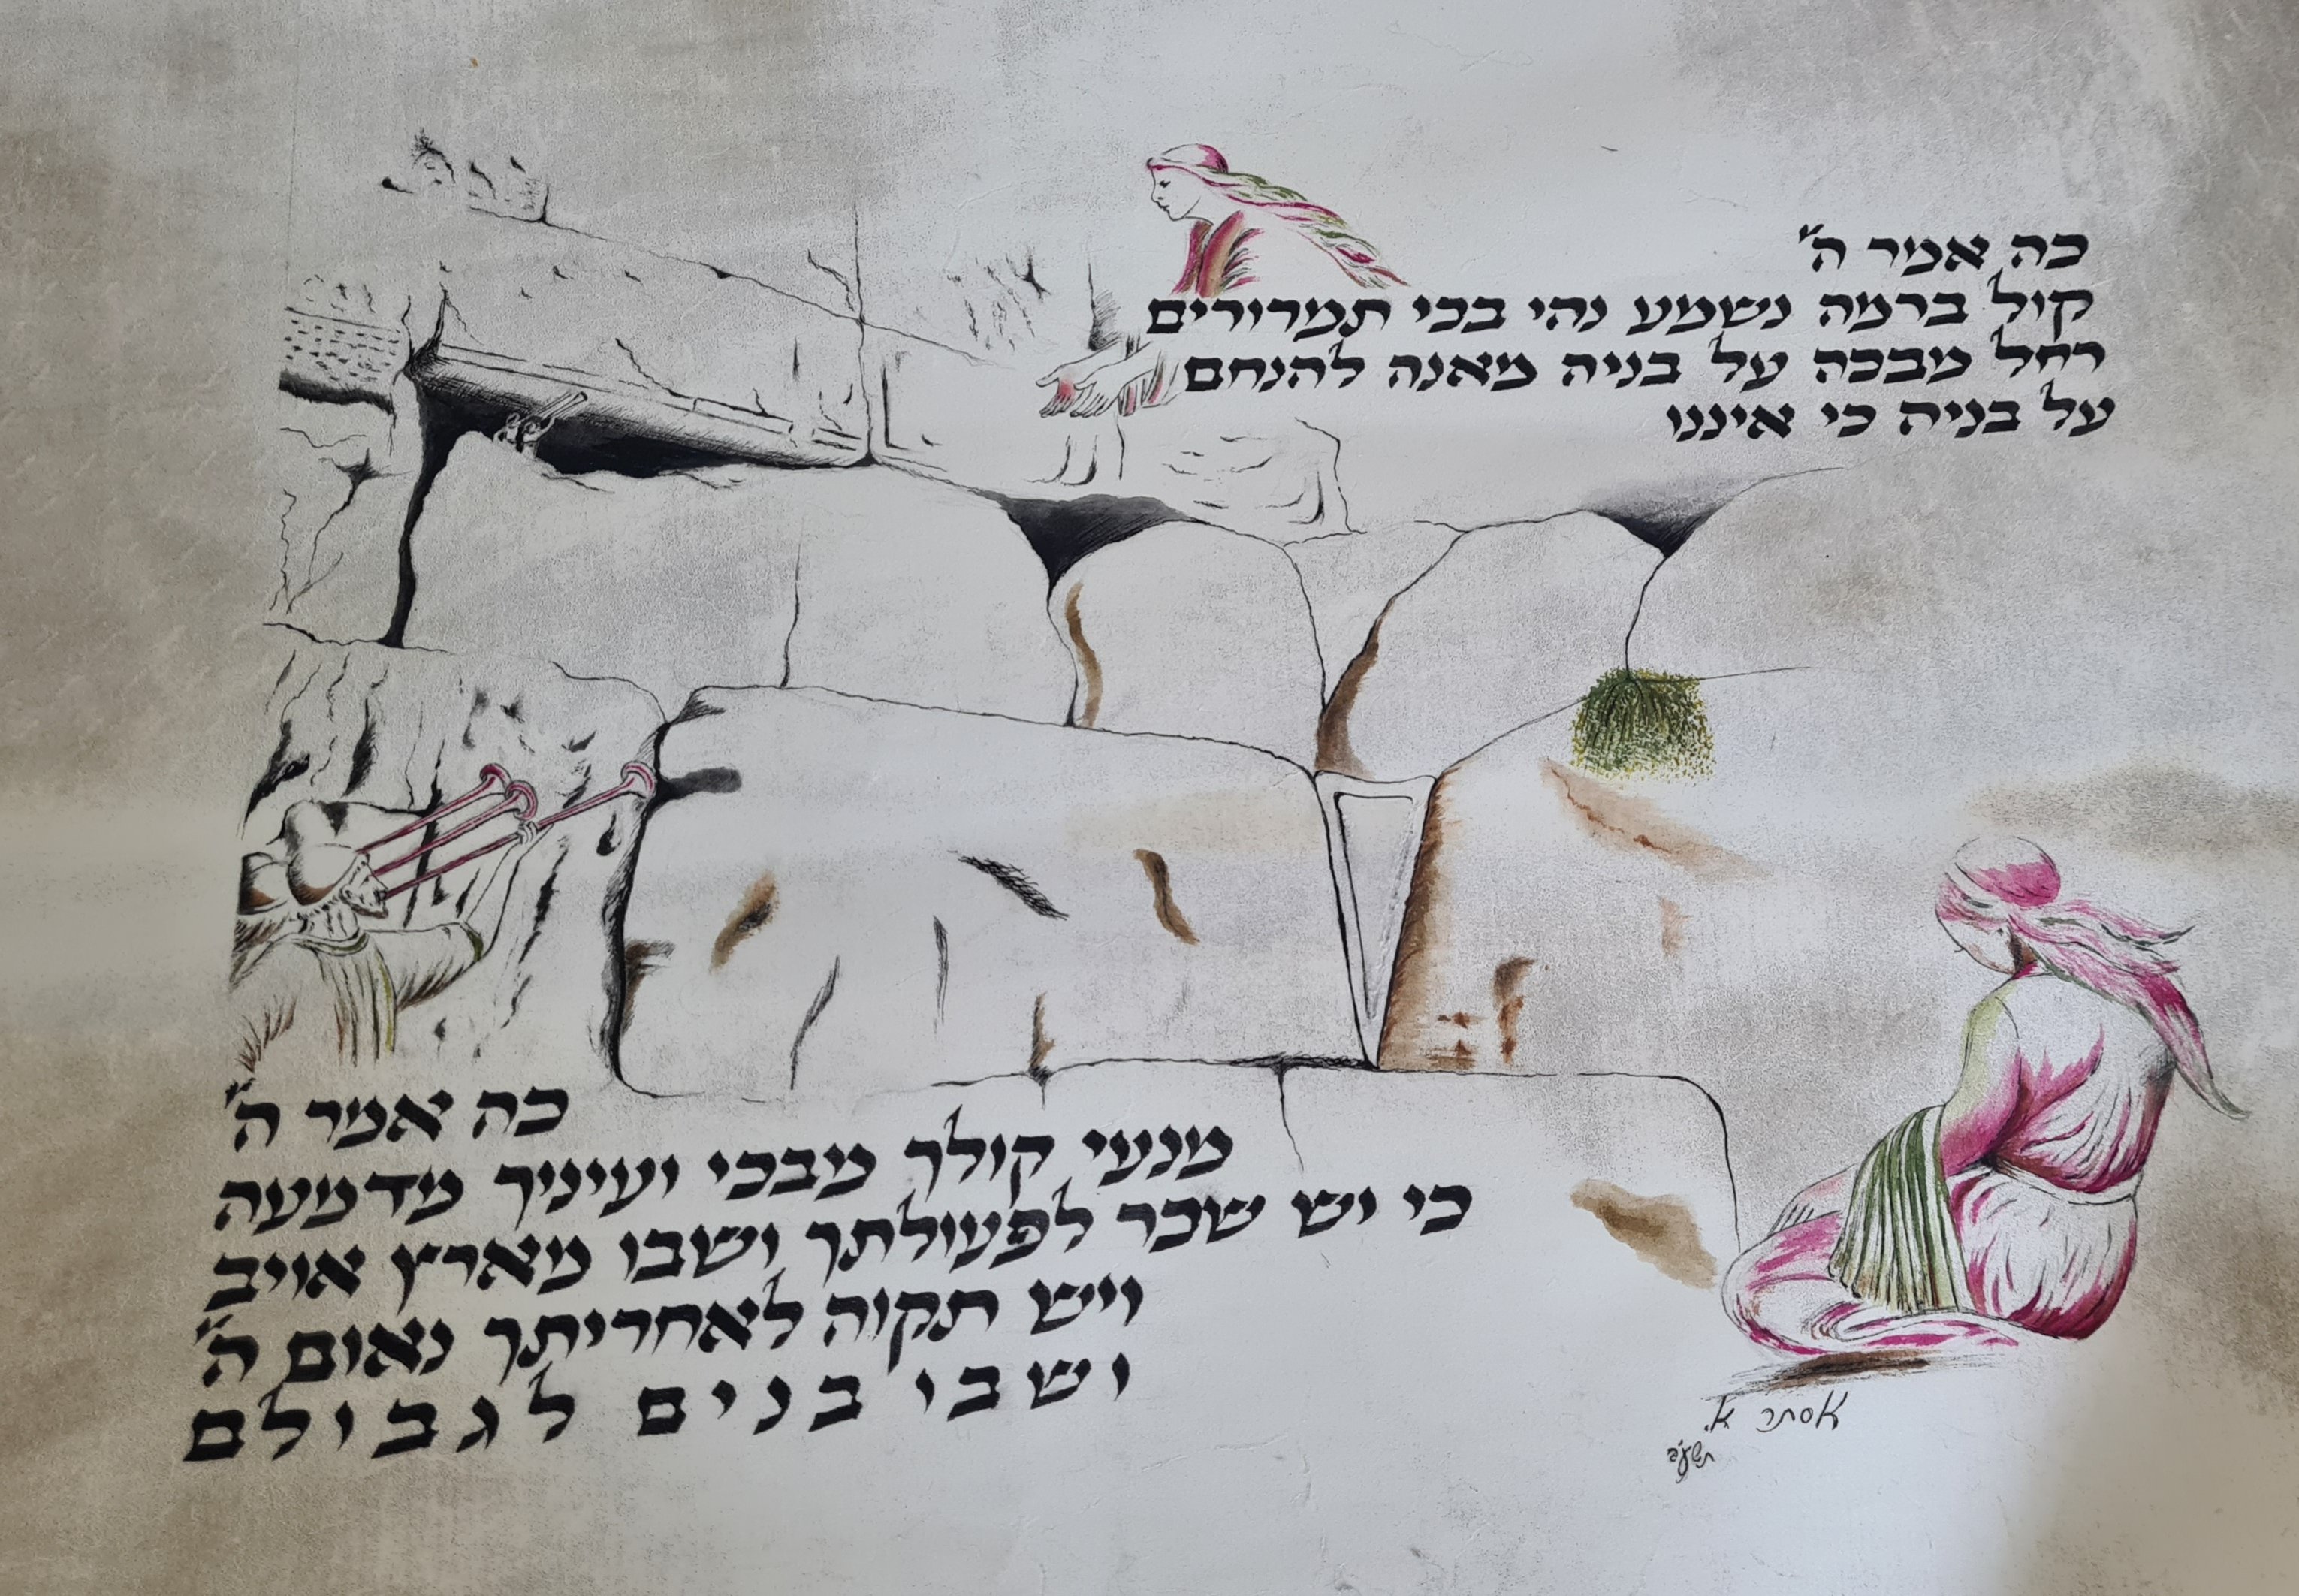 כה אמר ה"
קול ברמה נשמע נהי בכי תמרורים
רחל מבכה על בניה מאנה להנחם
על בניה כי איננו
כה אמר ה"
מנעי קולך מבכי ועיניך מדמעה
כי יש שכר לפעולתך ושבו מארץ אויב
ויש תקוה לאחריתך נאום ה"
ושבו בנים לגבולם
אסתר א.